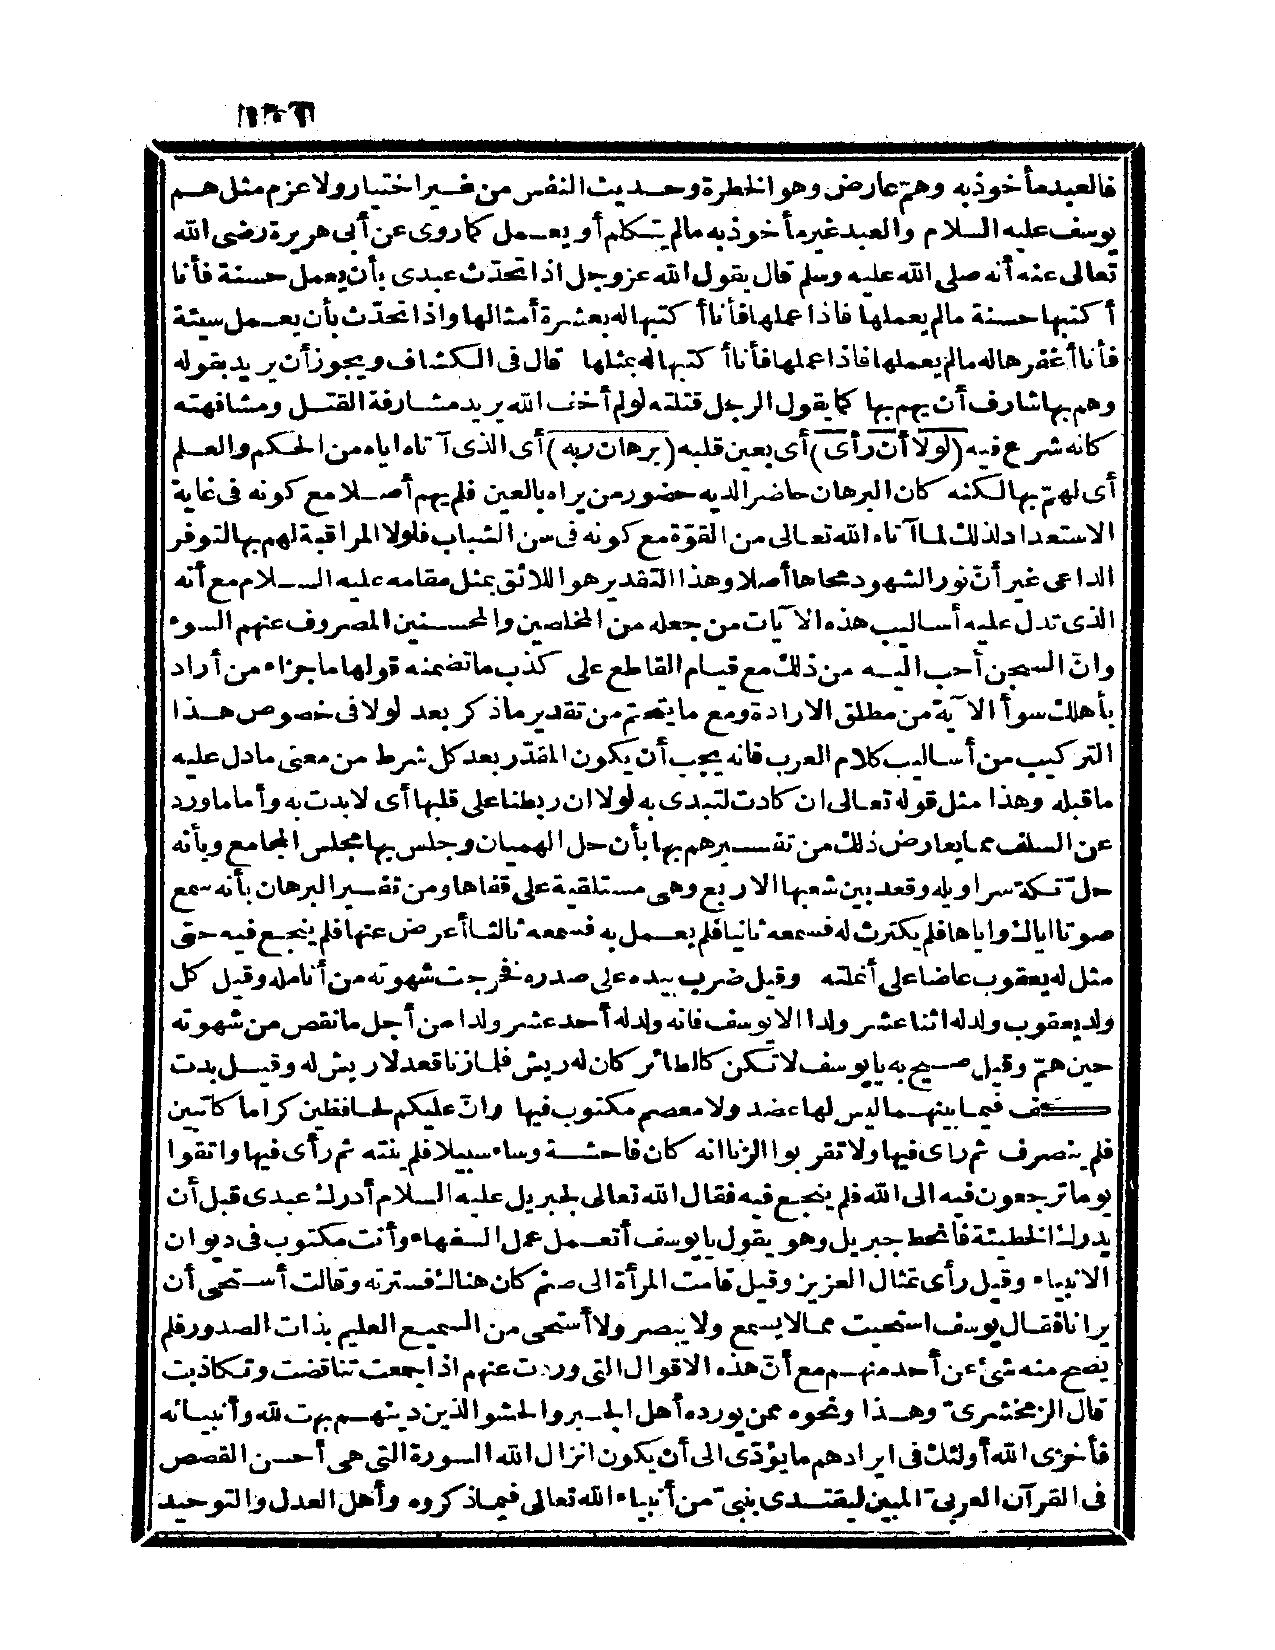 فالعبد مأخوذ به وهمّ عارض وهو الخطرة وحديث النفس من غير اختيار ولا عزم مثل هم
يوسف عليه السلام والعبد غير مأخوذ به مالم يتكلم أو يعمل كما روى عن أبى هريرة رضى الله
تعالى عنه أنه صلى الله عليه وسلم قال يقول الله عز وجل اذا تحدّث عبدى بأن يعمل حسنة فأنا
أكتبها حسنة مالم يعملها فاذا عملها فأنا أكتبها له بعشرة أمثالها واذا تحدث بأن يعمل سيئة
فأنا أغفرها له مالم يعملها فاذا عملها فأنا أكتبها له بمثلها قال فى الكشاف ويجوز أن يريد بقوله
وهم بها شارف أن يهم بها كما يقول الرجل قتلته لولم أخف الله يريد مشارفة القتل ومشافهته
كانه شرع فيه (لولا أن رأى) أى بعين قلبه (برهان ربه) أى الذى آتاه اياه من الحكم والعلم
أى لهمّ بها لكنه كان البرهان حاضرا لديه حضور من يراه بالعين فلم يهم أصلا مع كونه فى غاية
الاستعداد لذلك لما آتاه الله تعالى من القوّة مع كونه فى سن الشباب فلولا المراقبة لهم بها لتوفر
الداعى غير أنّ نور الشهود محاها أصلا وهذا التقدير هو اللائق بمثل مقامه عليه السلام مع أنه
الذى تدل عليه أساليب هذه الآيات من جعله من المخلصين والمحسنين المصروف عنهم السوء
وانّ السجن أحب اليه من ذلك مع قيام القاطع على كذب ما تضمنه قولها ما جزاء من أراد
بأهلك سوأ الآية من مطلق الارادة ومع ما يتحتم من تقدير ماذكر بعد لولا فى خصوص هذا
التركيب من أساليب كلام العرب فانه يجب أن يكون المقدّر بعد كل شرط من معنى ما دل عليه
ماقبله وهذا مثل قوله تعالى ان كادت لتبدى به لولا ان ربطنا على قلبها أى لابدت به وأما ماورد
عن السلف مما يعارض ذلك من تفسيرهم بها بأن حل الهميان وجلس بها مجلس المجامع وبأنه
حلّ تكة سراويله وقعد بين شعبها الاربع وهى مستلقية على قفاها ومن تفسير البرهان بأنه سمع
صوتا اياك واياها فلم يكترث له فسمعه ثانيا فلم يعمل به فسمعه ثالثا أعرض عنها فلم ينجع فيه حتى
مثل له يعقوب عاضا على أنملته وقيل ضرب بيده على صدره فخرجت شهوته من أنامله وقيل كل
ولد يعقوب ولد له اثنا عشر ولدا الا يوسف فانه ولد له أحد عشر ولدا من أجل ما نقص من شهوته
حين همّ وقيل صيح به يا يوسف لا تكن كالطائر كان له ريش فلما زنا قعد لا ريش له وقيل بدت
كف فيما بينهما ليس لها عضد ولا معصم مكتوب فيها وانّ عليكم لحافظين كراما كاتبين
فلم ينصرف ثم رأى فيها ولا تقربوا الزنا انه كان فاحشة وساء سبيلا فلم ينته ثم رأى فيها واتقوا
يوما ترجعون فيه الى الله فلم ينجع فيه فقال الله تعالى لجبريل عليه السلام أدرك عبدى قبل أن
يدرك الخطيئة فانحط جبريل وهو يقول يا يوسف أتعمل عمل السفهاء وأنت مكتوب فى ديوان
الانبياء وقيل رأى تمثال العزيز وقيل قامت المرأة الى صنم كان هناك فسترته وقالت أستحى أن
يرانا فقال يوسف استحيت ممالا يسمع ولا يبصر ولا أستحى من السميع العليم بذات الصدور فلم
يصح منه شئ عن أحد منهم مع أنّ هذه الاقوال التى وردت عنهم اذا جمعت تناقضت وتكاذبت
قال الزمخشرىّ وهذا ونحوه ممن يورده أهل الجبر والحشو الذين دينهم بهت لله وأنبيائه
فأخزى الله أولئك فى ايرادهم ما يؤدّى الى أن يكون انزال الله السورة التى هى أحسن القصص
فى القرآن العربىّ المبين ليقتدى بنبىّ من أنبياء الله تعالى فيماذكروه وأهل العدل والتوحيد